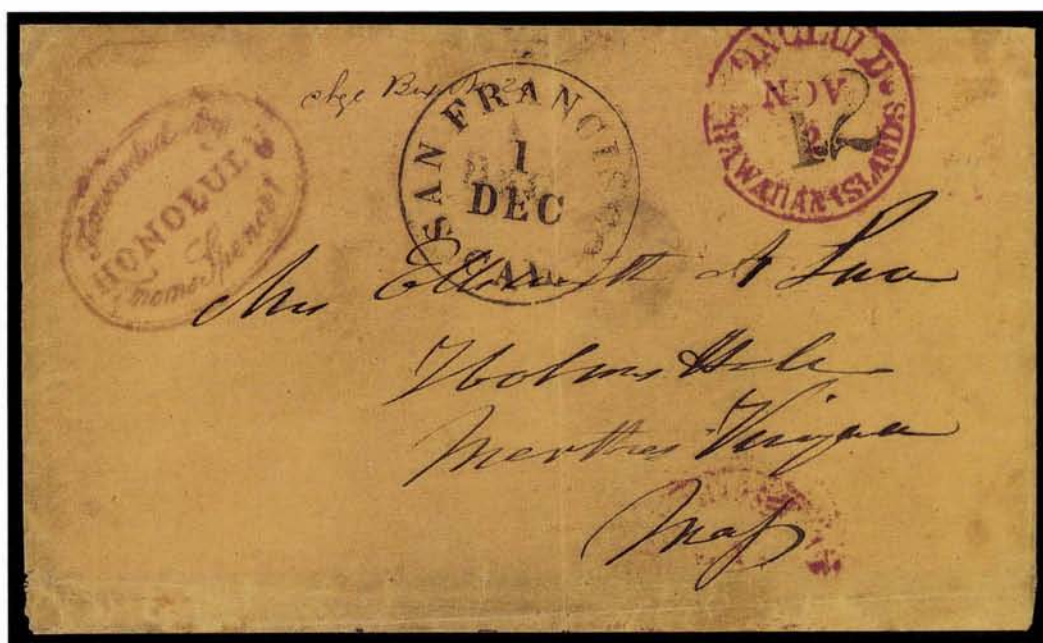 Forwarded by
HONOLULU
Thomas Spencer
chge Box No 2
SAN FRANCISCO
1
DEC
CAL.
HONOLULU
NOV
2
HAWAIIAN ISLANDS
12
Mrs Elisabeth A Luce
Holmes Hole
Marthas Vinyar
Mass